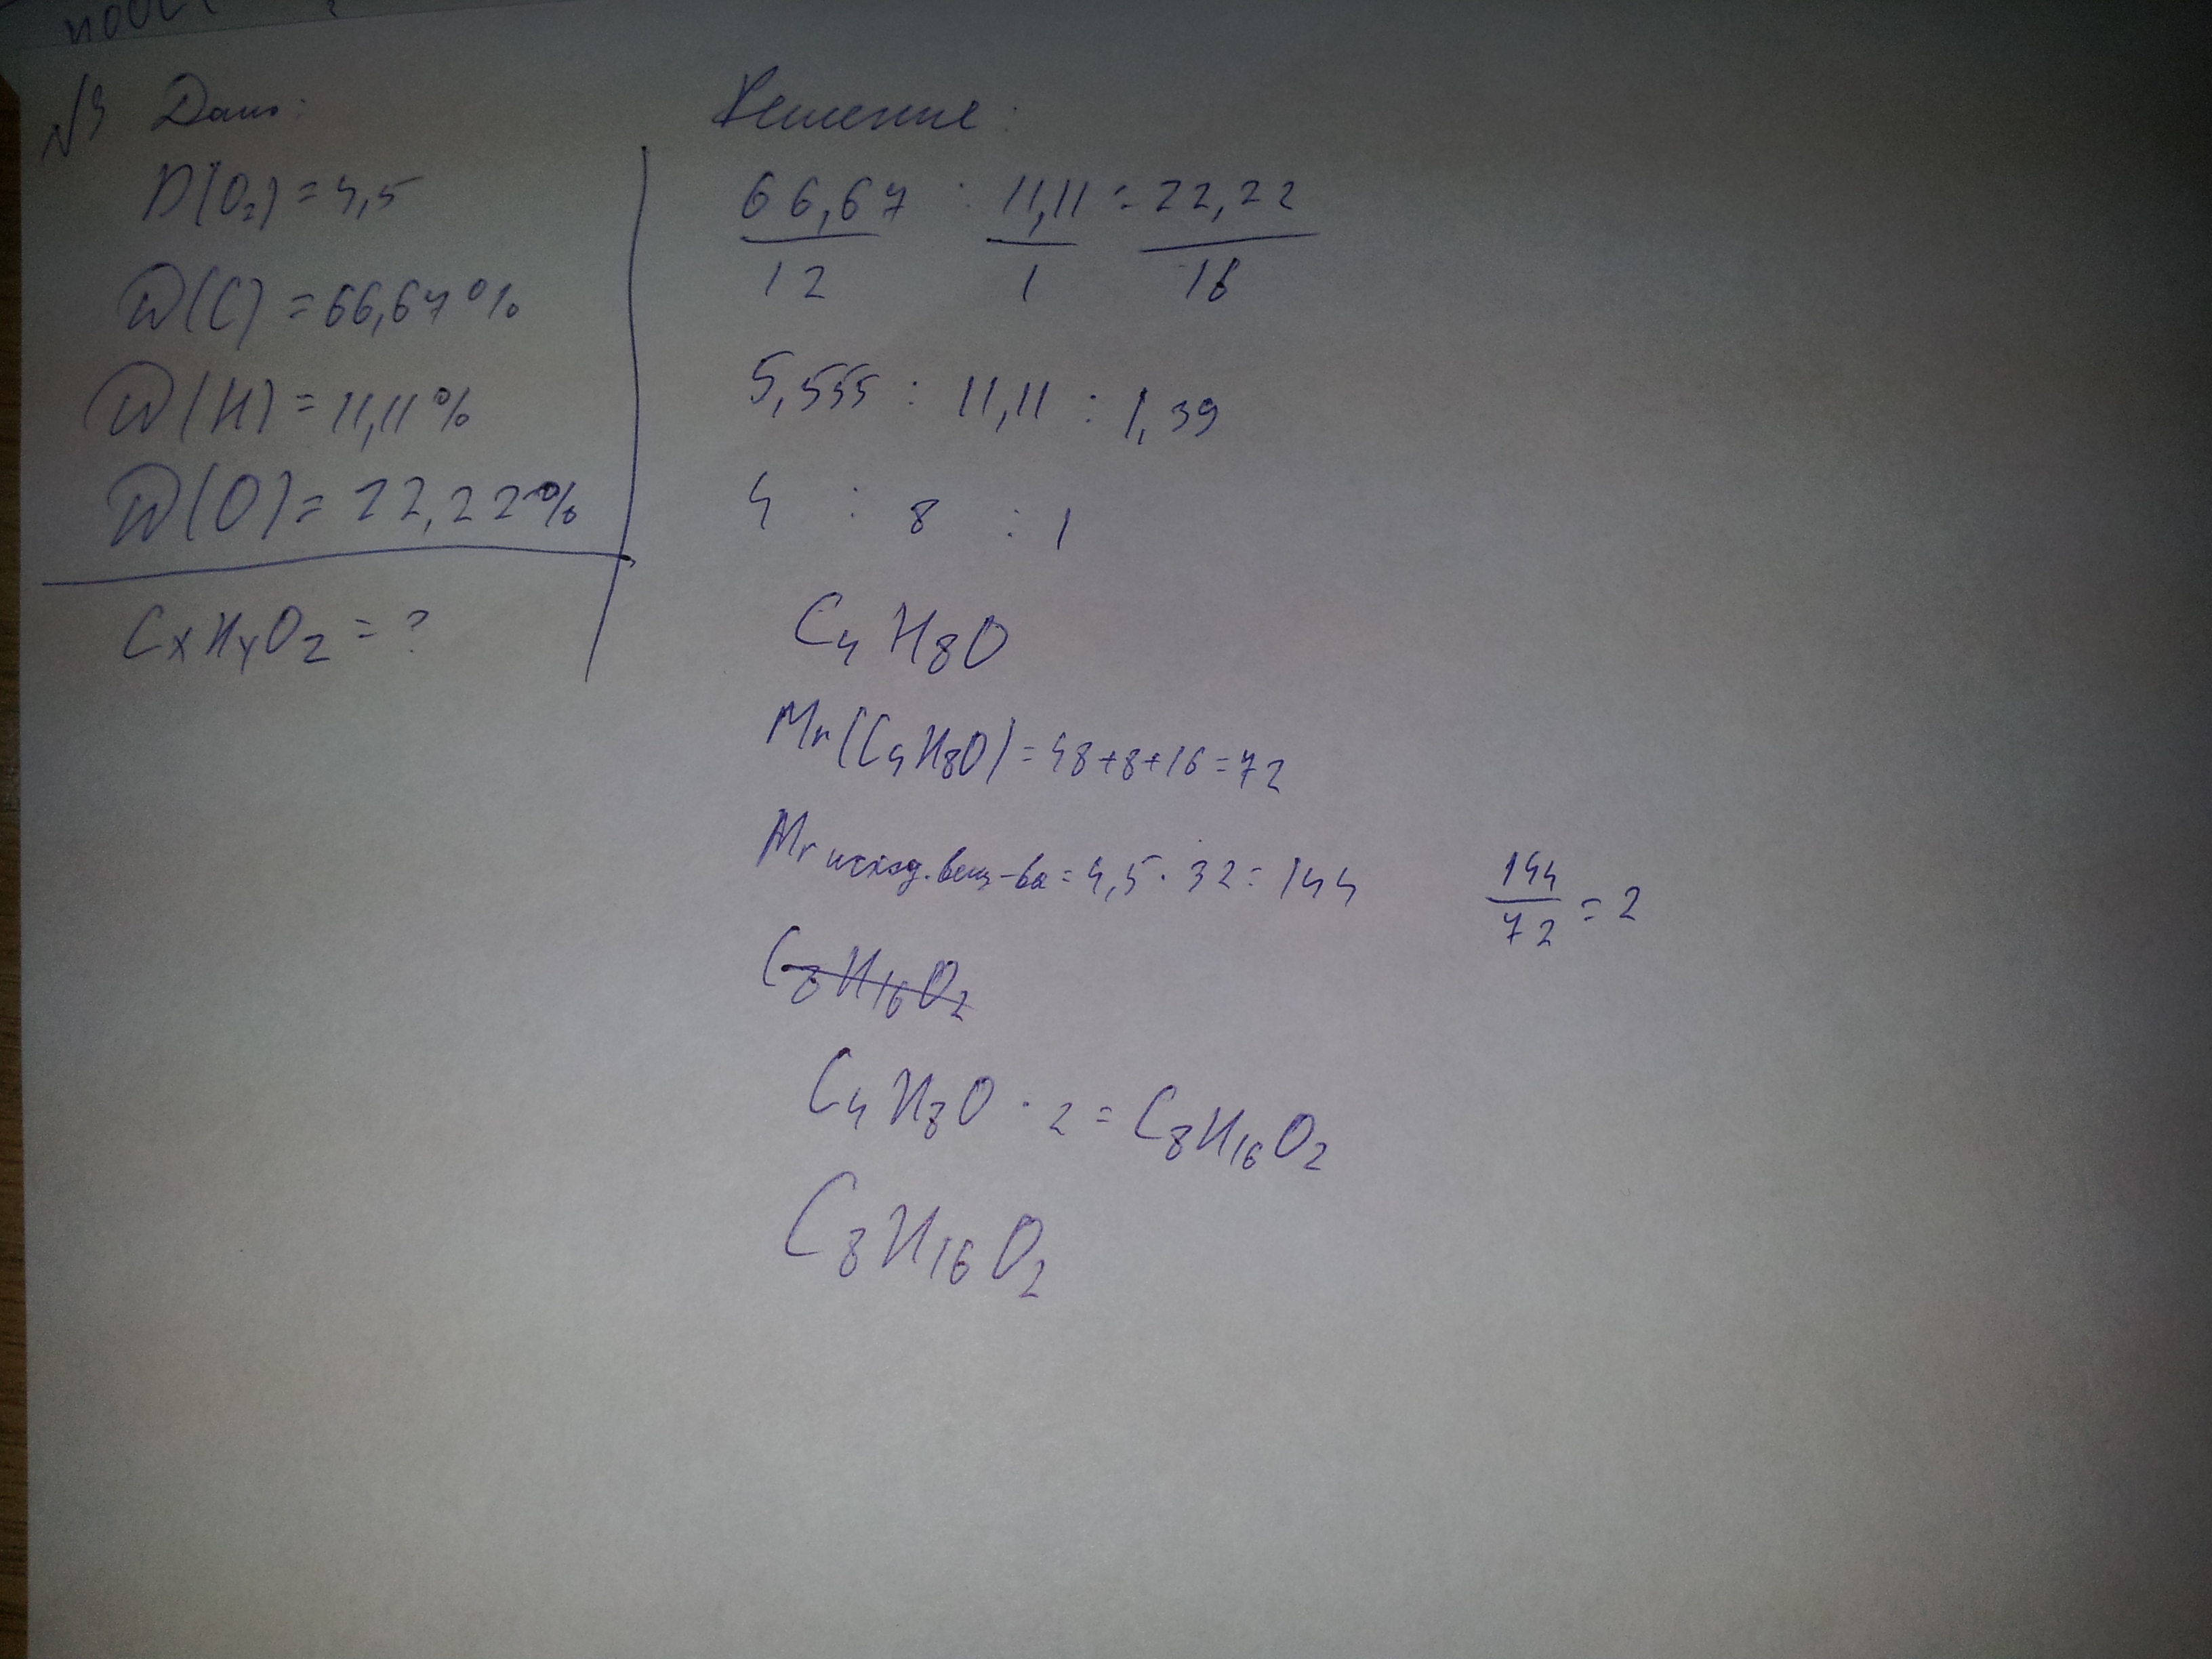 №4 Дано:
D(O₂) = 4,5
W(C) = 66,67%
W(H) = 11,11%
W(O) = 22,22%
CxHyOz = ?
Решение:
66,67/12 : 11,11/1 = 22,22/16
5,555 : 11,11 : 1,39
4 : 8 : 1
C₄H₈O
Mr(C₄H₈O) = 48+8+16=72
Mr исход. вещ-ва = 4,5 · 32 = 144
144/72 = 2
C₈H₁₆O₂
C₄H₈O · 2 = C₈H₁₆O₂
C₈H₁₆O₂